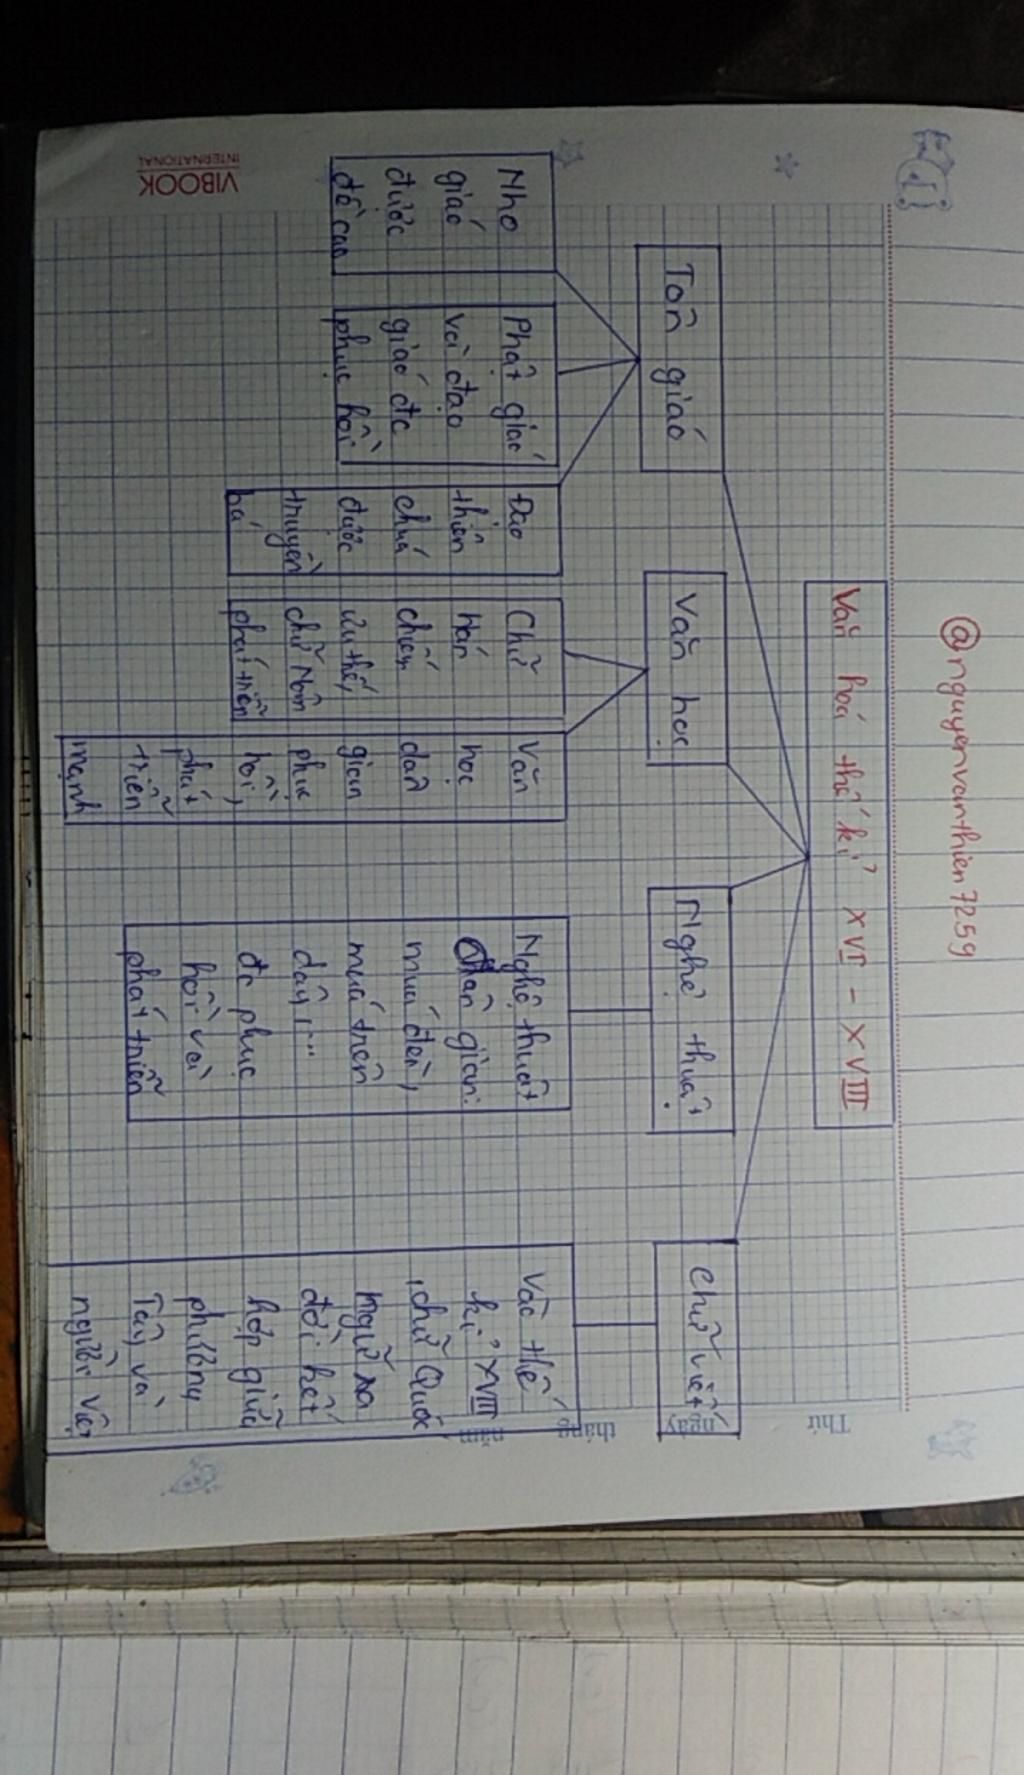 @nguyenvanthien7259
Văn hoá thế kỉ XVI - XVIII
Tôn giáo
Văn học
Nghệ thuật
Chữ viết
Nho
giáo
được
đề cao
Phật giáo
và đạo
giáo đc
phục hồi
Đạo
thiên
chúa
được
truyền
bá
Chữ
Hán
chiếm
ưu thế,
chữ Nôm
phát triển
Văn
học
dân
gian
phục
hồi,
phát
triển
mạnh
Nghệ thuật
dân gian:
múa đèn,
múa trên
dây,...
đc phục
hồi và
phát triển
Vào thế
kỉ XVII
,chữ Quốc
ngữ ra
đời kết
hợp giữa
phương
Tây và
người Việt
Thứ
ngày
tháng
năm
VIBOOK
INTERNATIONAL